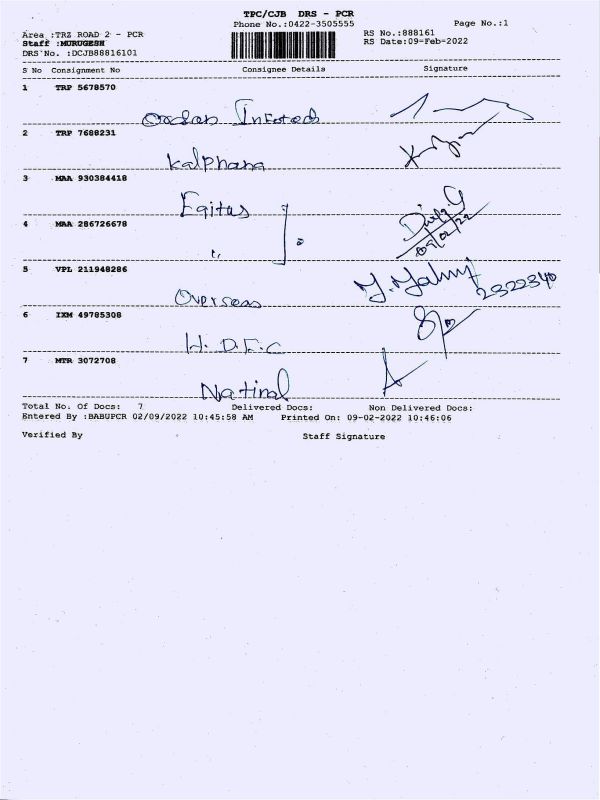 TPC/CJB DRS - PCR
Phone No.:0422-3505555
Page No.:1
Area :TRZ ROAD 2 - PCR
RS No.:888161
Staff :MURUGESH
RS Date:09-Feb-2022
DRS No. :DCJB88816101
S No Consignment No Consignee Details Signature
1 TRP 5678570
Infotech
2 TRP 7688231
Kalphana
3 MAA 930384418
Eqitas
4 MAA 286726678
09/02/22
5 VPL 211948286
Overseas
2322340
6 IXM 49785308
H.D.F.C
7 MTR 3072708
National
Total No. Of Docs: 7 Delivered Docs: Non Delivered Docs:
Entered By :BABUPCR 02/09/2022 10:45:58 AM Printed On: 09-02-2022 10:46:06
Verified By Staff Signature